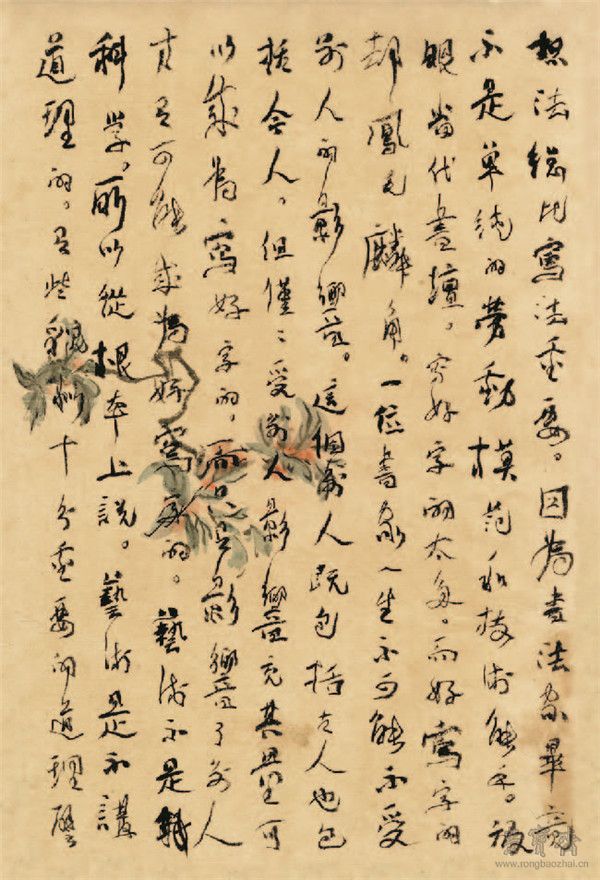 想法總比寫法重要。因為書法家畢竟
不是單純的勞動模范和技術能手。放
眼當代書壇。寫好字的太多。而好寫字的
却鳳毛麟角。一位書家一生不可能不受
別人的影響。這個別人既包括古人也包
括今人。但僅僅受別人影響充其量可
以成為寫好字的。而只有影響了別人
才有可能成為好寫家的。藝術不是
科學。所以從根本上説。藝術是不講
道理的。有些貌似十分重要的道理
www.rongbaozhai.cn